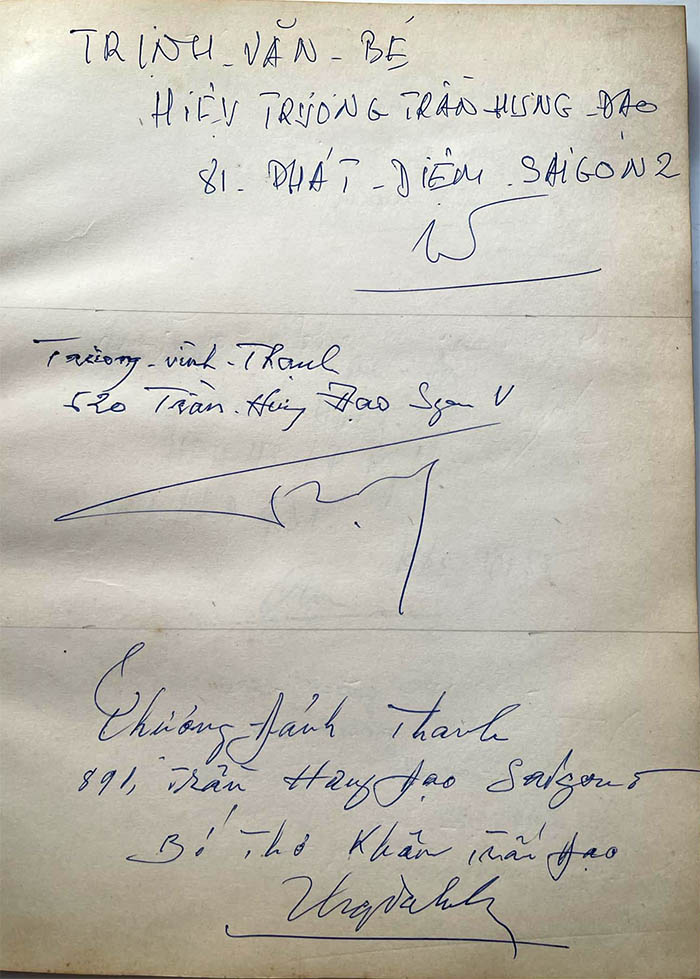 TRỊNH - VĂN - BÉ
HIỆU TRƯỞNG TRẦN HƯNG - ĐẠO
81 - PHÁT - DIỆM - SAIGÒN 2
Trương - Vĩnh - Thạnh
520 Trần Hưng Đạo Sgon V
Thanh
891, Trần Hưng Đạo Saigon 5
Bí Thơ Khăn Trắn Đạo